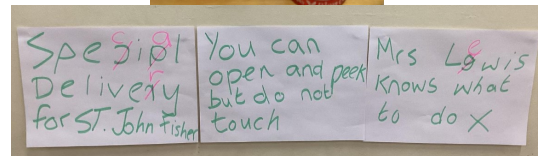 Special
Delivery
for ST. John Fisher
You can
open and peek
but do not
touch
Mrs Lewis
knows what
to do X